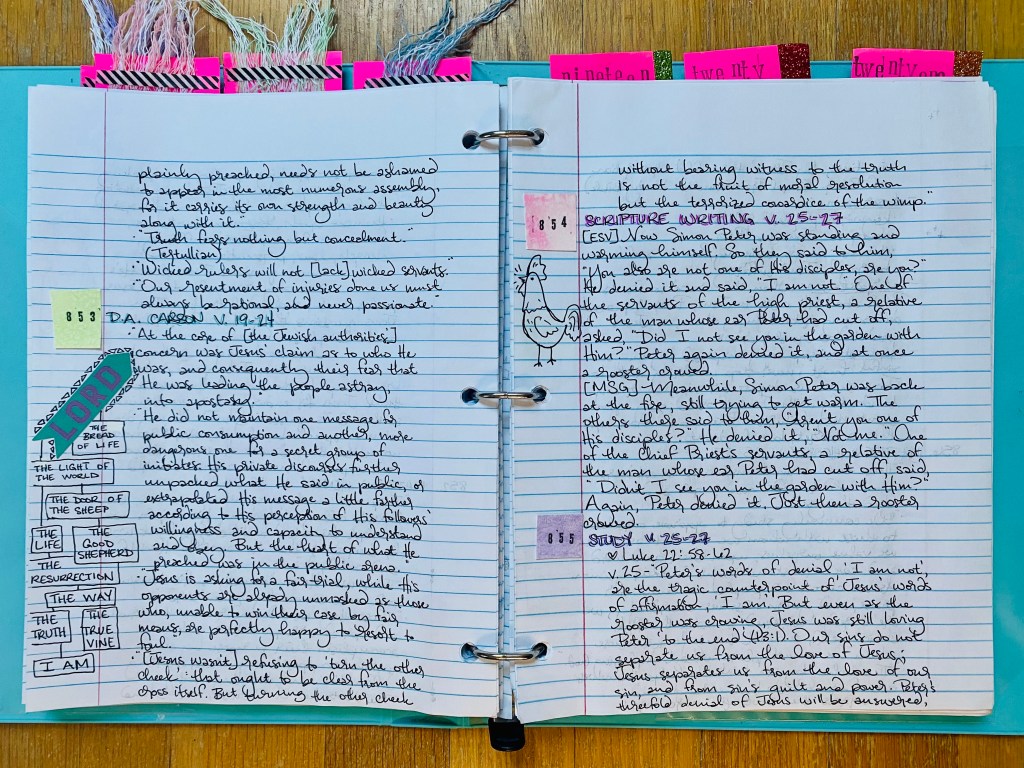 nineteen
twenty
plainly preached, needs not be ashamed
to appear in the most numerous assembly,
for it carries its own strength and beauty
along with it."
"Truth fears nothing but concealment."
(Tertullian)
"Wicked rulers will not [lack] wicked servants."
"Our resentment of injuries done us must
always be rational, and never passionate."
853 D.A. CARSON V. 19-24
"At the core of [the Jewish authorities']
concern was Jesus' claim as to who He
was, and consequently their fear that
He was leading the people astray,
into apostasy."
"He did not maintain one message for
public consumption and another, more
dangerous one for a secret group of
initiates. His private discourses further
unpacked what He said in public, or
extrapolated His message a little farther
according to His perception of His followers'
willingness and capacity to understand
and obey. But the heart of what He
preached was in the public arena."
"Jesus is asking for a fair trial, while His
opponents are already unmasked as those
who, unable to win their case by fair
means, are perfectly happy to resort to
foul."
"[Jesus wasn't] refusing to 'turn the other
cheek': that ought to be clear from the
cross itself. But turning the other cheek
LORD
THE BREAD OF LIFE
THE LIGHT OF
THE WORLD
THE DOOR OF
THE SHEEP
THE LIFE
THE GOOD SHEPHERD
THE
RESURRECTION
THE WAY
THE TRUTH
THE TRUE VINE
I AM
without bearing witness to the truth
is not the fruit of moral resolution
but the terrorized cowardice of the wimp."
854 SCRIPTURE WRITING V. 25-27
[ESV] Now Simon Peter was standing and
warming himself. So they said to him,
"You also are not one of His disciples, are you?"
He denied it and said, "I am not." One of
the servants of the high priest, a relative
of the man whose ear Peter had cut off,
asked, "Did I not see you in the garden with
Him?" Peter again denied it, and at once
a rooster crowed.
[MSG] Meanwhile, Simon Peter was back
at the fire, still trying to get warm. The
others there said to him, "Aren't you one of
His disciples?" He denied it, "Not me." One
of the Chief Priest's servants, a relative of
the man whose ear Peter had cut off, said,
"Didn't I see you in the garden with Him?"
Again, Peter denied it. Just then a rooster
crowed.
855 STUDY V. 25-27
♡ Luke 22:58-62
v. 25- "Peter's words of denial 'I am not',
are the tragic counterpoint of Jesus' words
of affirmation, 'I am'. But even as the
rooster was crowing, Jesus was still loving
Peter 'to the end' (13:1). Our sins do not
separate us from the love of Jesus;
Jesus separates us from the love of our
sin, and from sin's guilt and power. Peter's
threefold denial of Jesus will be answered,